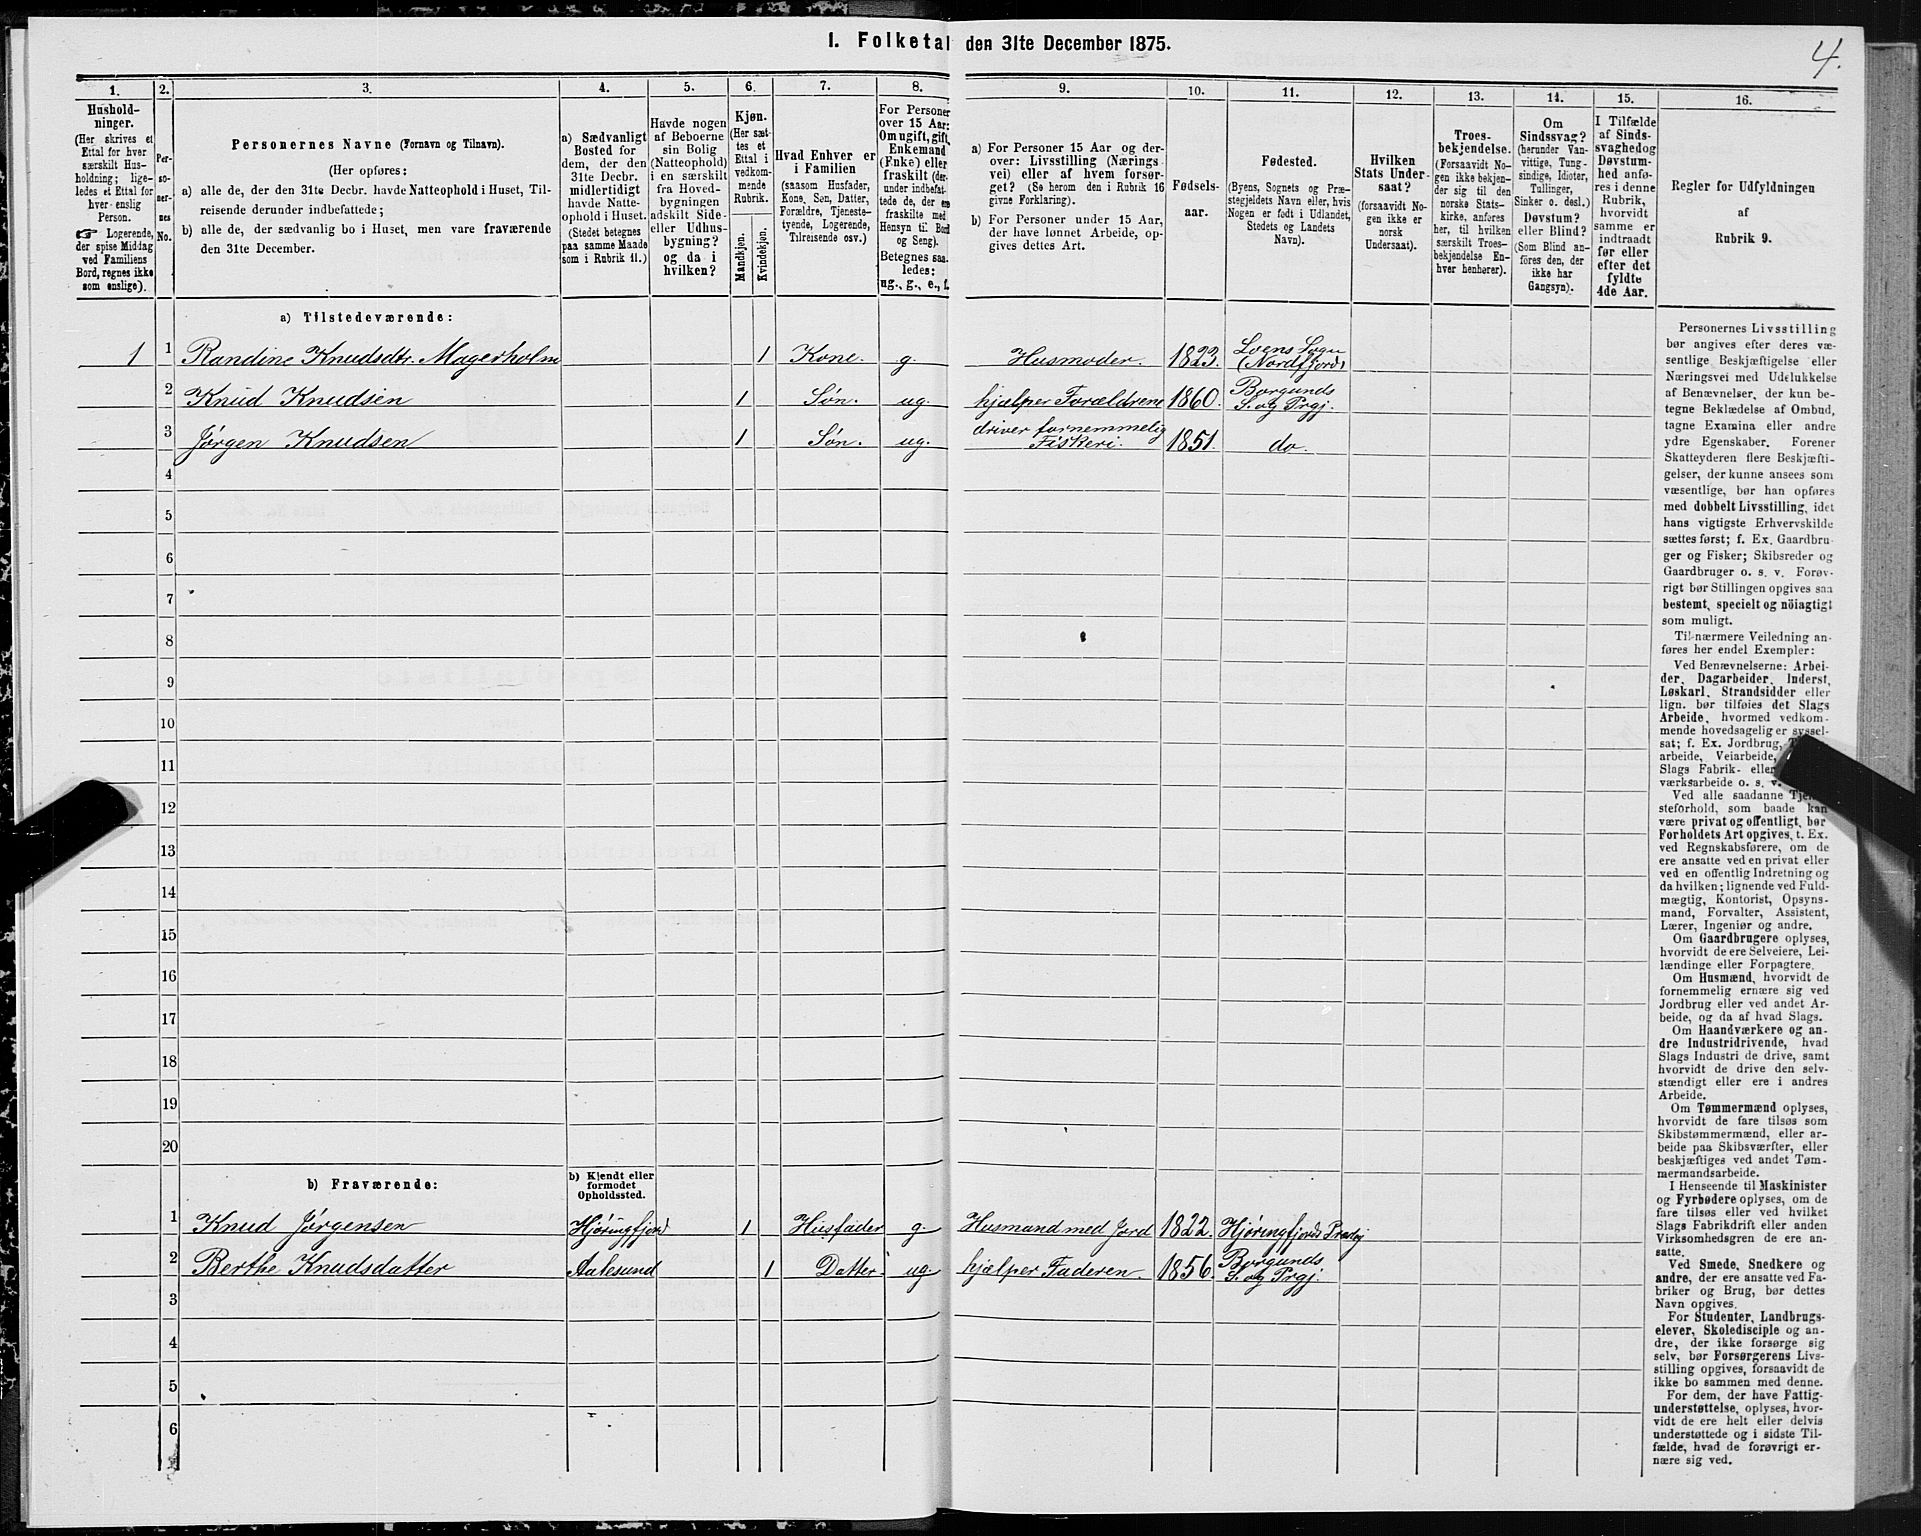 I. Folketal den 31te December 1875.
4.
1.
2.
3.
4.
5.
6.
7.
8.
9.
10.
11.
12.
13.
14.
15.
16.
Hushold-
ninger.
(Her skrives et
Ettal for hver
særskilt Hus-
holdning; lige-
ledes et Ettal for
hver enslig
Person.
☞ Logerende,
der spise Middag
ved Familiens
Bord, regnes ikke
som enslige).
Per-
so-
ner-
nes
No.
Personernes Navne (Fornavn og Tilnavn).
(Her opføres:
a) alle de, der den 31te Decbr. havde Natteophold i Huset, Til-
reisende derunder indbefattede;
b) alle de, der sædvanlig bo i Huset, men vare fraværende
den 31te December.
a) Sædvanligt
Bosted for
dem, der den
31te Decbr.
midlertidigt
havde Natte-
ophold i Huset.
(Stedet betegnes
paa samme Maade
som i Rubrik 11.)
Havde nogen
af Beboerne
sin Bolig
(Natteophold)
i en særskilt
fra Hoved-
bygningen
adskilt Side-
eller Udhus-
bygning?
og da i
hvilken?
Kjøn.
(Her sæt-
tes et
Ettal i
vedkom-
mende
Rubrik.
Mandkjøn.
Kvindekjøn.
Hvad Enhver er
i Familien
(saasom Husfader,
Kone, Søn, Datter,
Forældre, Tjeneste-
tyende, Logerende,
Tilreisende osv.)
For Personer
over 15 Aar:
Om ugift, gift,
Enkemand
(Enke) eller
fraskilt (der-
under indbefat-
tede de, der ere
fraskilte med
Hensyn til Bord
og Seng).
Betegnes saa-
ledes:
ug., g., e., f.
a) For Personer 15 Aar og der-
over: Livsstilling (Nærings-
vei) eller af hvem forsør-
get? (Se herom den i Rubrik 16
givne Forklaring).
b) For Personer under 15 Aar,
der have lønnet Arbeide, op-
gives dettes Art.
Fødsels-
aar.
Fødested.
(Byens, Sognets og Præ-
stegjeldets Navn eller, hvis
Nogen er født i Udlandet,
Stedets og Landets
Navn).
Hvilken
Stats Under-
saat?
(forsaavidt No-
gen ikke er
norsk
Undersaat).
Troes-
bekjendelse.
(Forsaavidt No-
gen ikke bekjen-
der sig til den
norske Stats-
kirke, anføres
her, til hvilken
særskilt Troes-
bekjendelse En-
hver henhører).
Om
Sindssvag?
(herunder Van-
vittige, Tung-
sindige, Idioter,
Tullinger,
Sinker o. desl.)
Døvstum?
eller Blind?
(Som Blind an-
føres den, der
ikke har
Gangsyn).
I Tilfælde
af Sinds-
svaghed og
Døvstum-
hed anfø-
res i denne
Rubrik,
hvorvidt
samme er
indtraadt
før eller
efter det
fyldte
4de Aar.
Regler for Udfyldningen
af
Rubrik 9.
a) Tilstedeværende:
1 1 Randine Knudsdtr. Magerholm 1 Kone. g. Husmoder. 1823. Loens Sogn
(Nordfjord)
2 Knud Knudsen 1 Søn. ug. hjælper Forældrene 1860. Borgunds
S. og Prgj.
3 Jørgen Knudsen 1 Søn. ug. driver fornemmelig
Fiskeri. 1851. do.
4
5
6
7
8
9
10
11
12
13
14
15
16
17
18
19
20
b) Fraværende:
b) Kjendt eller
formodet
Opholdssted.
1 Knud Jørgensen Hjørugfjord 1 Husfader g. Husmand med Jord 1822. Hjøringfjords Præstgj
2 Berthe Knudsdatter Aalesund 1 Datter. ug. hjælper Faderen. 1856. Borgunds
S. og Prgj.
3
4
5
6
Personernes Livsstilling
bør angives efter deres væ-
sentlige Beskjæftigelse eller
Næringsvei med Udelukkelse
af Benævnelser, der kun be-
tegne Beklædelse af Ombud,
tagne Examina eller andre
ydre Egenskaber. Forener
Skatteyderen flere Beskjæfti-
gelser, der kunne ansees som
væsentlige, bør han opføres
med dobbelt Livsstilling, idet
hans vigtigste Erhvervskilde
sættes først; f. Ex. Gaardbru-
ger og Fisker; Skibsreder og
Gaardbruger o. s. v. Forøv-
rigt bør Stillingen opgives saa
bestemt, specielt og nöiagtigt
som muligt.
Til nærmere Veiledning an-
føres her endel Exempler:
Ved Benævnelserne: Arbei-
der, Dagarbeider, Inderst,
Løskarl, Strandsidder eller
lign. bør tilføies det Slags
Arbeide, hvormed vedkom-
mende hovedsagelig er syssel-
sat; f. Ex. Jordbrug,
arbeide, Veiarbeide,
Slags Fabrik- eller
værksarbeide o. s. v.
Ved alle saadanne Tjene-
steforhold, som baade kan
være privat og offentligt, bør
Forholdets Art opgives, t. Ex.
ved Regnskabsførere, om de
ere ansatte ved en privat eller
ved en offentlig Indretning og
da hvilken; lignende ved Fuld-
mægtig, Kontorist, Opsyns-
mand, Forvalter, Assistent,
Lærer, Ingeniør og andre.
Om Gaardbrugere oplyses,
hvorvidt de ere Selveiere, Lei-
lændinge eller Forpagtere.
Om Husmænd, hvorvidt de
fornemmelig ernære sig ved
Jordbrug eller ved andet Ar-
beide, og da af hvad Slags.
Om Haandværkere og an-
dre Industridrivende, hvad
Slags Industri de drive, samt
hvorvidt de drive den selv-
stændigt eller ere i andres
Arbeide.
Om Tømmermænd oplyses,
hvorvidt de fare tilsøs som
Skibstømmermænd, eller ar-
beide paa Skibsværfter, eller
beskjæftiges ved andet Tøm-
mermandsarbeide.
I Henseende til Maskinister
og Fyrbødere oplyses, om de
fare tilsøs eller ved hvilket
Slags Fabrikdrift eller anden
Virksomhedsgren de ere an-
satte.
Ved Smede, Snedkere og
andre, der ere ansatte ved Fa-
briker og Brug, bør dettes
Navn opgives.
For Studenter, Landbrugs-
elever, Skoledisciple og an-
dre, der ikke forsørge sig
selv, bør Forsørgerens Livs-
stilling opgives, forsaavidt de
ikke bo sammen med denne.
For dem, der have Fattig-
understøttelse, oplyses, hvor-
vidt de ere helt eller delvis
understøttede og i sidste Til-
fælde, hvad de forøvrigt er-
nære sig ved.